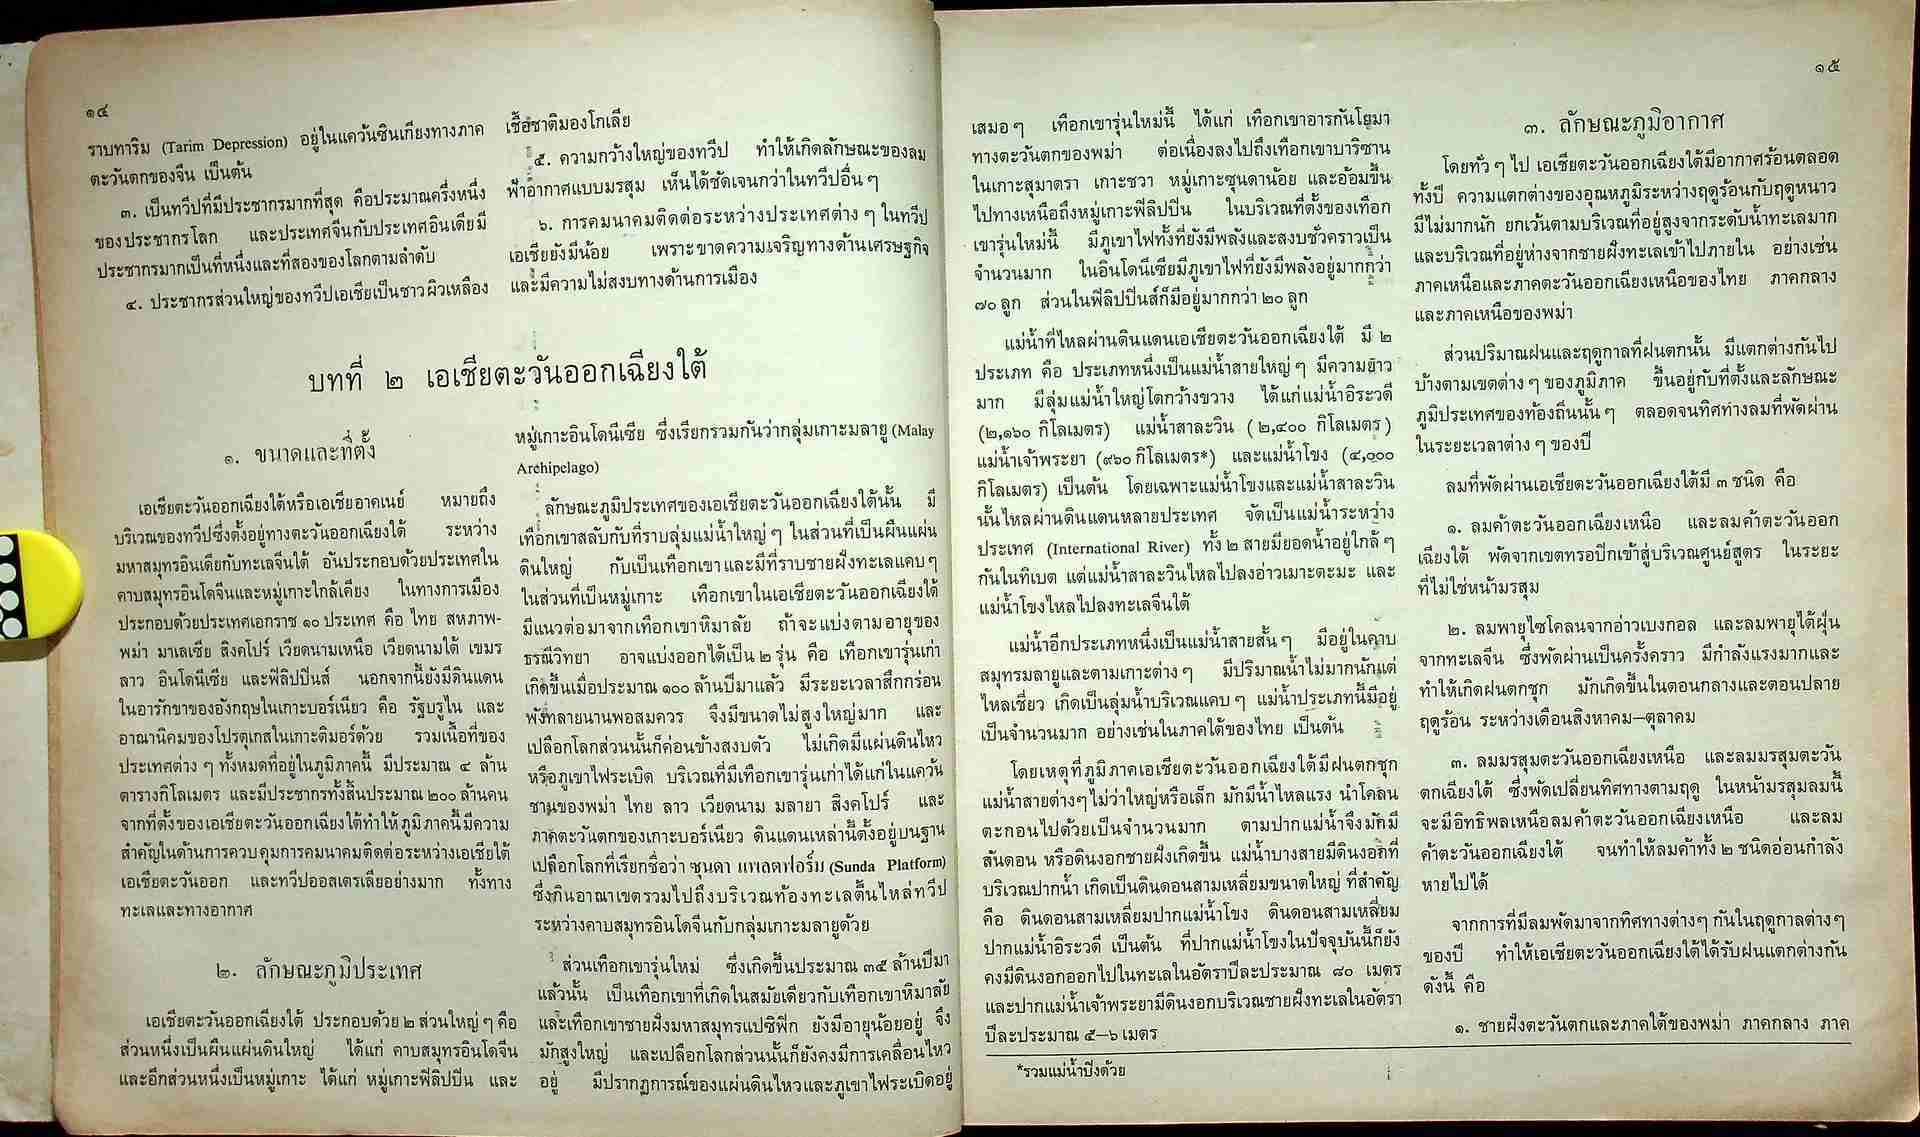 ๑๔
ราบทาริม (Tarim Depression) อยู่ในแคว้นซินเกียงทางภาค
ตะวันตกของจีน เป็นต้น
๓. เป็นทวีปที่มีประชากรมากที่สุด คือประมาณครึ่งหนึ่ง
ของประชากรโลก และประเทศจีนกับประเทศอินเดียมี
ประชากรมากเป็นที่หนึ่งและที่สองของโลกตามลำดับ
๔. ประชากรส่วนใหญ่ของทวีปเอเชียเป็นชาวผิวเหลือง
เชื้อชาติมองโกเลีย
๕. ความกว้างใหญ่ของทวีป ทำให้เกิดลักษณะของลม
ฟ้าอากาศแบบมรสุม เห็นได้ชัดเจนกว่าในทวีปอื่น ๆ
๖. การคมนาคมติดต่อระหว่างประเทศต่าง ๆ ในทวีป
เอเชียยังมีน้อย เพราะขาดความเจริญทางด้านเศรษฐกิจ
และมีความไม่สงบทางด้านการเมือง
บทที่ ๒ เอเชียตะวันออกเฉียงใต้
๑. ขนาดและที่ตั้ง
เอเชียตะวันออกเฉียงใต้หรือเอเชียอาคเนย์ หมายถึง
บริเวณของทวีปซึ่งตั้งอยู่ทางตะวันออกเฉียงใต้ ระหว่าง
มหาสมุทรอินเดียกับทะเลจีนใต้ อันประกอบด้วยประเทศใน
คาบสมุทรอินโดจีนและหมู่เกาะใกล้เคียง ในทางการเมือง
ประกอบด้วยประเทศเอกราช ๑๐ ประเทศ คือ ไทย สหภาพ-
พม่า มาเลเซีย สิงคโปร์ เวียดนามเหนือ เวียดนามใต้ เขมร
ลาว อินโดนีเซีย และฟิลิปปินส์ นอกจากนี้ยังมีดินแดน
ในอารักขาของอังกฤษในเกาะบอร์เนียว คือ รัฐบรูไน และ
อาณานิคมของโปรตุเกสในเกาะติมอร์ด้วย รวมเนื้อที่ของ
ประเทศต่าง ๆ ทั้งหมดที่อยู่ในภูมิภาคนี้ มีประมาณ ๔ ล้าน
ตารางกิโลเมตร และมีประชากรทั้งสิ้นประมาณ ๒๐๐ ล้านคน
จากที่ตั้งของเอเชียตะวันออกเฉียงใต้ทำให้ภูมิภาคนี้มีความ
สำคัญในด้านการควบคุมการคมนาคมติดต่อระหว่างเอเชียใต้
เอเชียตะวันออก และทวีปออสเตรเลียอย่างมาก ทั้งทาง
ทะเลและทางอากาศ
๒. ลักษณะภูมิประเทศ
เอเชียตะวันออกเฉียงใต้ ประกอบด้วย ๒ ส่วนใหญ่ ๆ คือ
ส่วนหนึ่งเป็นผืนแผ่นดินใหญ่ ได้แก่ คาบสมุทรอินโดจีน
และอีกส่วนหนึ่งเป็นหมู่เกาะ ได้แก่ หมู่เกาะฟิลิปปิน และ
หมู่เกาะอินโดนีเซีย ซึ่งเรียกรวมกันว่ากลุ่มเกาะมลายู (Malay
Archipelago)
ลักษณะภูมิประเทศของเอเชียตะวันออกเฉียงใต้นั้น มี
เทือกเขาสลับกับที่ราบลุ่มแม่น้ำใหญ่ ๆ ในส่วนที่เป็นผืนแผ่น
ดินใหญ่ กับเป็นเทือกเขาและมีที่ราบชายฝั่งทะเลแคบ ๆ
ในส่วนที่เป็นหมู่เกาะ เทือกเขาในเอเชียตะวันออกเฉียงใต้
มีแนวต่อมาจากเทือกเขาหิมาลัย ถ้าจะแบ่งตามอายุของ
ธรณีวิทยา อาจแบ่งออกได้เป็น ๒ รุ่น คือ เทือกเขารุ่นเก่า
เกิดขึ้นเมื่อประมาณ ๑๐๐ ล้านปีมาแล้ว มีระยะเวลาสึกกร่อน
พังทลายนานพอสมควร จึงมีขนาดไม่สูงใหญ่มาก และ
เปลือกโลกส่วนนั้นก็ค่อนข้างสงบตัว ไม่เกิดมีแผ่นดินไหว
หรือภูเขาไฟระเบิด บริเวณที่มีเทือกเขารุ่นเก่าได้แก่ในแคว้น
ชานของพม่า ไทย ลาว เวียดนาม มลายา สิงคโปร์ และ
ภาคตะวันตกของเกาะบอร์เนียว ดินแดนเหล่านี้ตั้งอยู่บนฐาน
เปลือกโลกที่เรียกชื่อว่า ซุนดา แพลตฟอร์ม (Sunda Platform)
ซึ่งกินอาณาเขตรวมไปถึงบริเวณท้องทะเลตื้นไหล่ทวีป
ระหว่างคาบสมุทรอินโดจีนกับกลุ่มเกาะมลายูด้วย
ส่วนเทือกเขารุ่นใหม่ ซึ่งเกิดขึ้นประมาณ ๓๕ ล้านปีมา
แล้วนั้น เป็นเทือกเขาที่เกิดในสมัยเดียวกับเทือกเขาหิมาลัย
และเทือกเขาชายฝั่งมหาสมุทรแปซิฟิก ยังมีอายุน้อยอยู่ จึง
มักสูงใหญ่ และเปลือกโลกส่วนนั้นก็ยังคงมีการเคลื่อนไหว
อยู่ มีปรากฏการณ์ของแผ่นดินไหวและภูเขาไฟระเบิดอยู่
๑๕
เสมอ ๆ เทือกเขารุ่นใหม่นี้ ได้แก่ เทือกเขาอารกันโยมา
ทางตะวันตกของพม่า ต่อเนื่องลงไปถึงเทือกเขาบาริซาน
ในเกาะสุมาตรา เกาะชวา หมู่เกาะซุนดาน้อย และอ้อมขึ้น
ไปทางเหนือถึงหมู่เกาะฟิลิปปิน ในบริเวณที่ตั้งของเทือก
เขารุ่นใหม่นี้ มีภูเขาไฟทั้งที่ยังมีพลังและสงบชั่วคราวเป็น
จำนวนมาก ในอินโดนีเซียมีภูเขาไฟที่ยังมีพลังอยู่มากกว่า
๗๐ ลูก ส่วนในฟิลิปปินส์ก็มีอยู่มากกว่า ๒๐ ลูก
แม่น้ำที่ไหลผ่านดินแดนเอเชียตะวันออกเฉียงใต้ มี ๒
ประเภท คือ ประเภทหนึ่งเป็นแม่น้ำสายใหญ่ ๆ มีความยาว
มาก มีลุ่มแม่น้ำใหญ่โตกว้างขวาง ได้แก่แม่น้ำอิระวดี
(๒,๑๖๐ กิโลเมตร) แม่น้ำสาละวิน (๒,๔๐๐ กิโลเมตร)
แม่น้ำเจ้าพระยา (๙๖๐ กิโลเมตร*) และแม่น้ำโขง (๔,๐๐๐
กิโลเมตร) เป็นต้น โดยเฉพาะแม่น้ำโขงและแม่น้ำสาละวิน
นั้นไหลผ่านดินแดนหลายประเทศ จัดเป็นแม่น้ำระหว่าง
ประเทศ (International River) ทั้ง ๒ สายมียอดน้ำอยู่ใกล้ ๆ
กันในทิเบต แต่แม่น้ำสาละวินไหลไปลงอ่าวเมาะตะมะ และ
แม่น้ำโขงไหลไปลงทะเลจีนใต้
แม่น้ำอีกประเภทหนึ่งเป็นแม่น้ำสายสั้น ๆ มีอยู่ในคาบ
สมุทรมลายูและตามเกาะต่าง ๆ มีปริมาณน้ำไม่มากนักแต่
ไหลเชี่ยว เกิดเป็นลุ่มน้ำบริเวณแคบ ๆ แม่น้ำประเภทนี้มีอยู่
เป็นจำนวนมาก อย่างเช่นในภาคใต้ของไทย เป็นต้น
โดยเหตุที่ภูมิภาคเอเชียตะวันออกเฉียงใต้มีฝนตกชุก
แม่น้ำสายต่างๆ ไม่ว่าใหญ่หรือเล็ก มักมีน้ำไหลแรง นำโคลน
ตะกอนไปด้วยเป็นจำนวนมาก ตามปากแม่น้ำจึงมักมี
สันดอน หรือดินงอกชายฝั่งเกิดขึ้น แม่น้ำบางสายมีดินงอกที่
บริเวณปากน้ำ เกิดเป็นดินดอนสามเหลี่ยมขนาดใหญ่ ที่สำคัญ
คือ ดินดอนสามเหลี่ยมปากแม่น้ำโขง ดินดอนสามเหลี่ยม
ปากแม่น้ำอิระวดี เป็นต้น ที่ปากแม่น้ำโขงในปัจจุบันนี้ก็ยัง
คงมีดินงอกออกไปในทะเลในอัตราปีละประมาณ ๘๐ เมตร
และปากแม่น้ำเจ้าพระยามีดินงอกบริเวณชายฝั่งทะเลในอัตรา
ปีละประมาณ ๕–๖ เมตร
*รวมแม่น้ำปิงด้วย
๓. ลักษณะภูมิอากาศ
โดยทั่ว ๆ ไป เอเชียตะวันออกเฉียงใต้มีอากาศร้อนตลอด
ทั้งปี ความแตกต่างของอุณหภูมิระหว่างฤดูร้อนกับฤดูหนาว
มีไม่มากนัก ยกเว้นตามบริเวณที่อยู่สูงจากระดับน้ำทะเลมาก
และบริเวณที่อยู่ห่างจากชายฝั่งทะเลเข้าไปภายใน อย่างเช่น
ภาคเหนือและภาคตะวันออกเฉียงเหนือของไทย ภาคกลาง
และภาคเหนือของพม่า
ส่วนปริมาณฝนและฤดูกาลที่ฝนตกนั้น มีแตกต่างกันไป
บ้างตามเขตต่าง ๆ ของภูมิภาค ขึ้นอยู่กับที่ตั้งและลักษณะ
ภูมิประเทศของท้องถิ่นนั้น ๆ ตลอดจนทิศทางลมที่พัดผ่าน
ในระยะเวลาต่าง ๆ ของปี
ลมที่พัดผ่านเอเชียตะวันออกเฉียงใต้มี ๓ ชนิด คือ
๑. ลมค้าตะวันออกเฉียงเหนือ และลมค้าตะวันออก
เฉียงใต้ พัดจากเขตทรอปิกเข้าสู่บริเวณศูนย์สูตร ในระยะ
ที่ไม่ใช่หน้ามรสุม
๒. ลมพายุไซโคลนจากอ่าวเบงกอล และลมพายุไต้ฝุ่น
จากทะเลจีน ซึ่งพัดผ่านเป็นครั้งคราว มีกำลังแรงมากและ
ทำให้เกิดฝนตกชุก มักเกิดขึ้นในตอนกลางและตอนปลาย
ฤดูร้อน ระหว่างเดือนสิงหาคม–ตุลาคม
๓. ลมมรสุมตะวันออกเฉียงเหนือ และลมมรสุมตะวัน
ตกเฉียงใต้ ซึ่งพัดเปลี่ยนทิศทางตามฤดู ในหน้ามรสุมลมนี้
จะมีอิทธิพลเหนือลมค้าตะวันออกเฉียงเหนือ และลม
ค้าตะวันออกเฉียงใต้ จนทำให้ลมค้าทั้ง ๒ ชนิดอ่อนกำลัง
หายไปได้
จากการที่มีลมพัดมาจากทิศทางต่างๆ กันในฤดูกาลต่างๆ
ของปี ทำให้เอเชียตะวันออกเฉียงใต้ได้รับฝนแตกต่างกัน
ดังนี้ คือ
๑. ชายฝั่งตะวันตกและภาคใต้ของพม่า ภาคกลาง ภาค